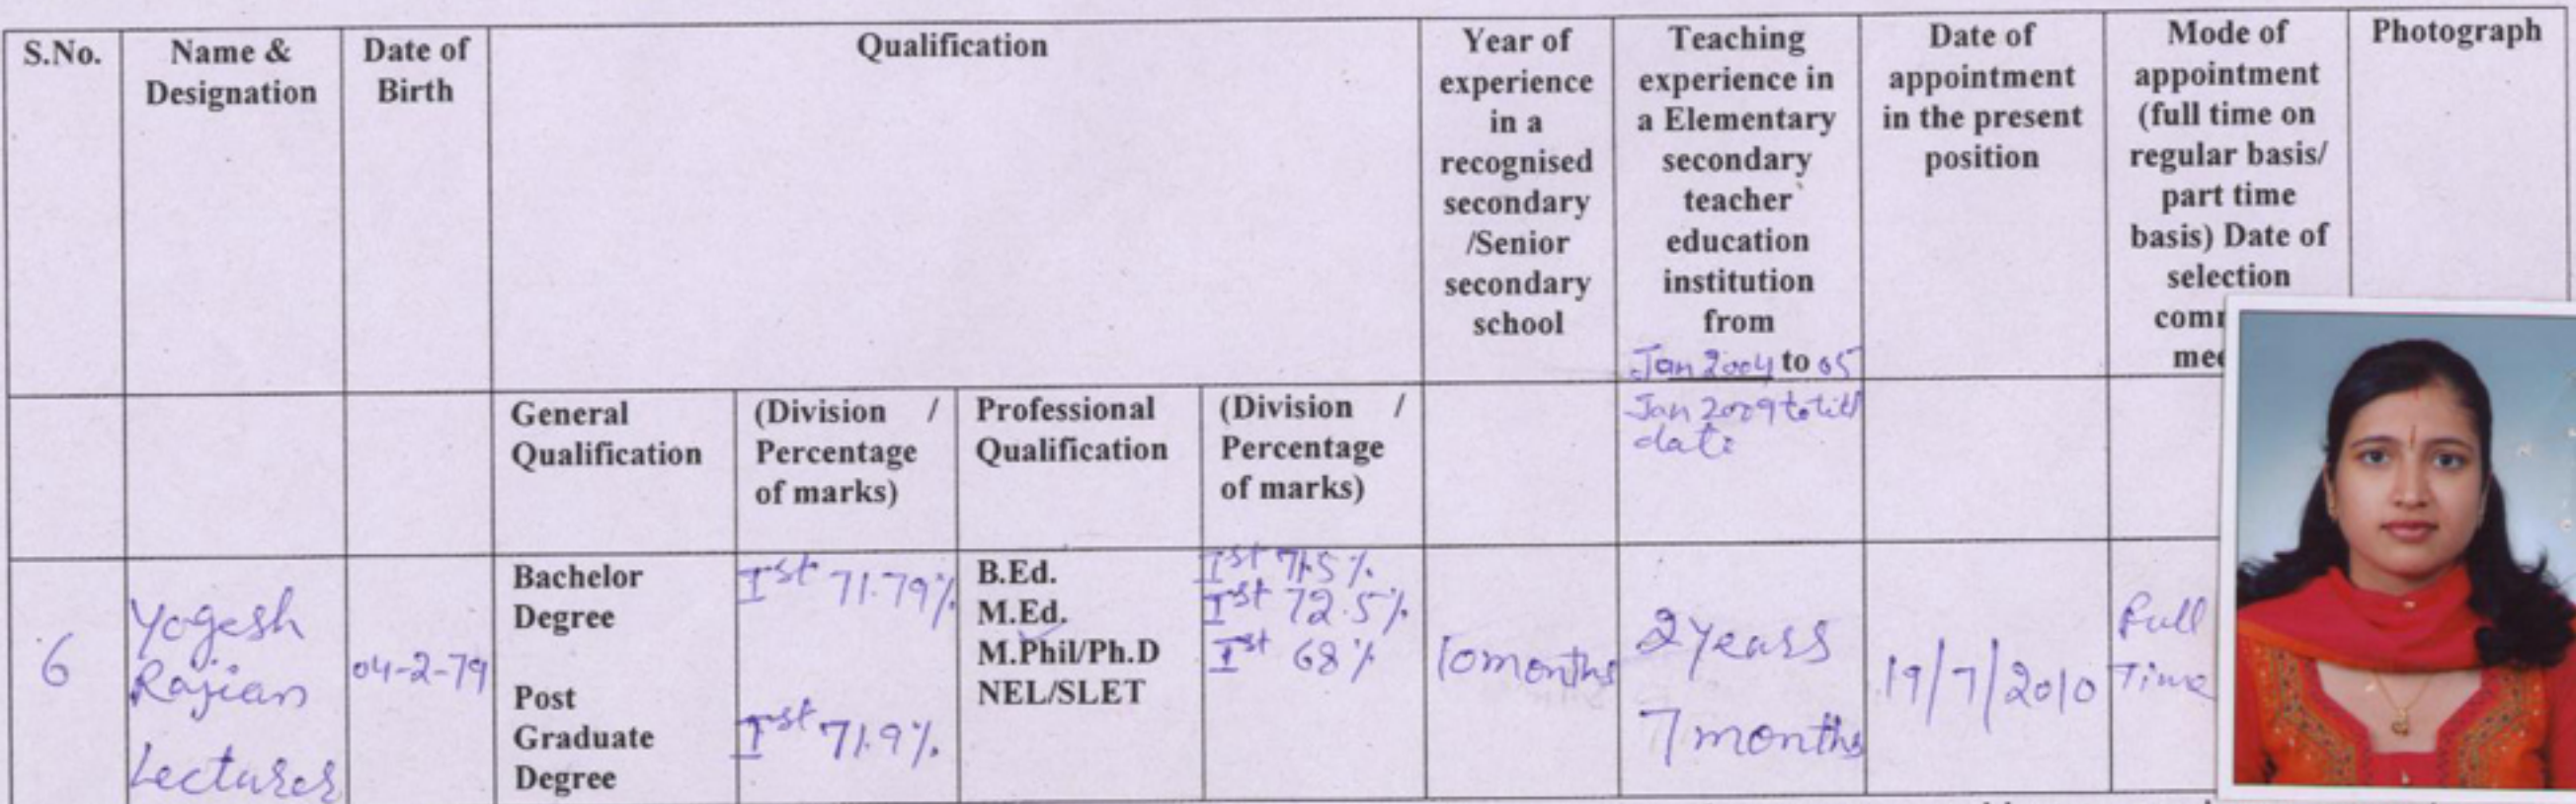 S.No.
Name &
Designation
Date of
Birth
Qualification
Year of
experience
in a
recognised
secondary
/Senior
secondary
school
Teaching
experience in
a Elementary
secondary
teacher
education
institution
from
Jan 2004 to 05
Jan 2009 to till
date
Date of
appointment
in the present
position
Mode of
appointment
(full time on
regular basis/
part time
basis) Date of
selection
Photograph
General
Qualification
(Division /
Percentage
of marks)
Professional
Qualification
(Division /
Percentage
of marks)
6
Yogesh
Rajian
Lecturer
04-2-79
Bachelor
Degree
Post
Graduate
Degree
Ist 71.79%
Ist 71.9%
B.Ed.
M.Ed.
M.Phil/Ph.D
NEL/SLET
Ist 71.5%
Ist 72.5%
Ist 68%
10 months
2 years
7 months
19/7/2010
Full
Time